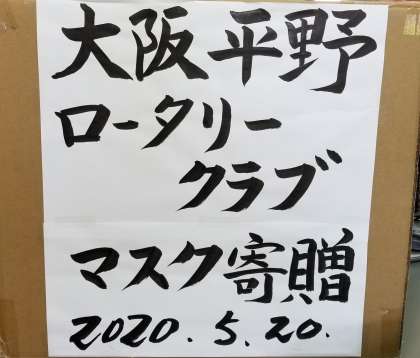 大阪平野
ロータリー
クラブ
マスク寄贈
2020.5.20.